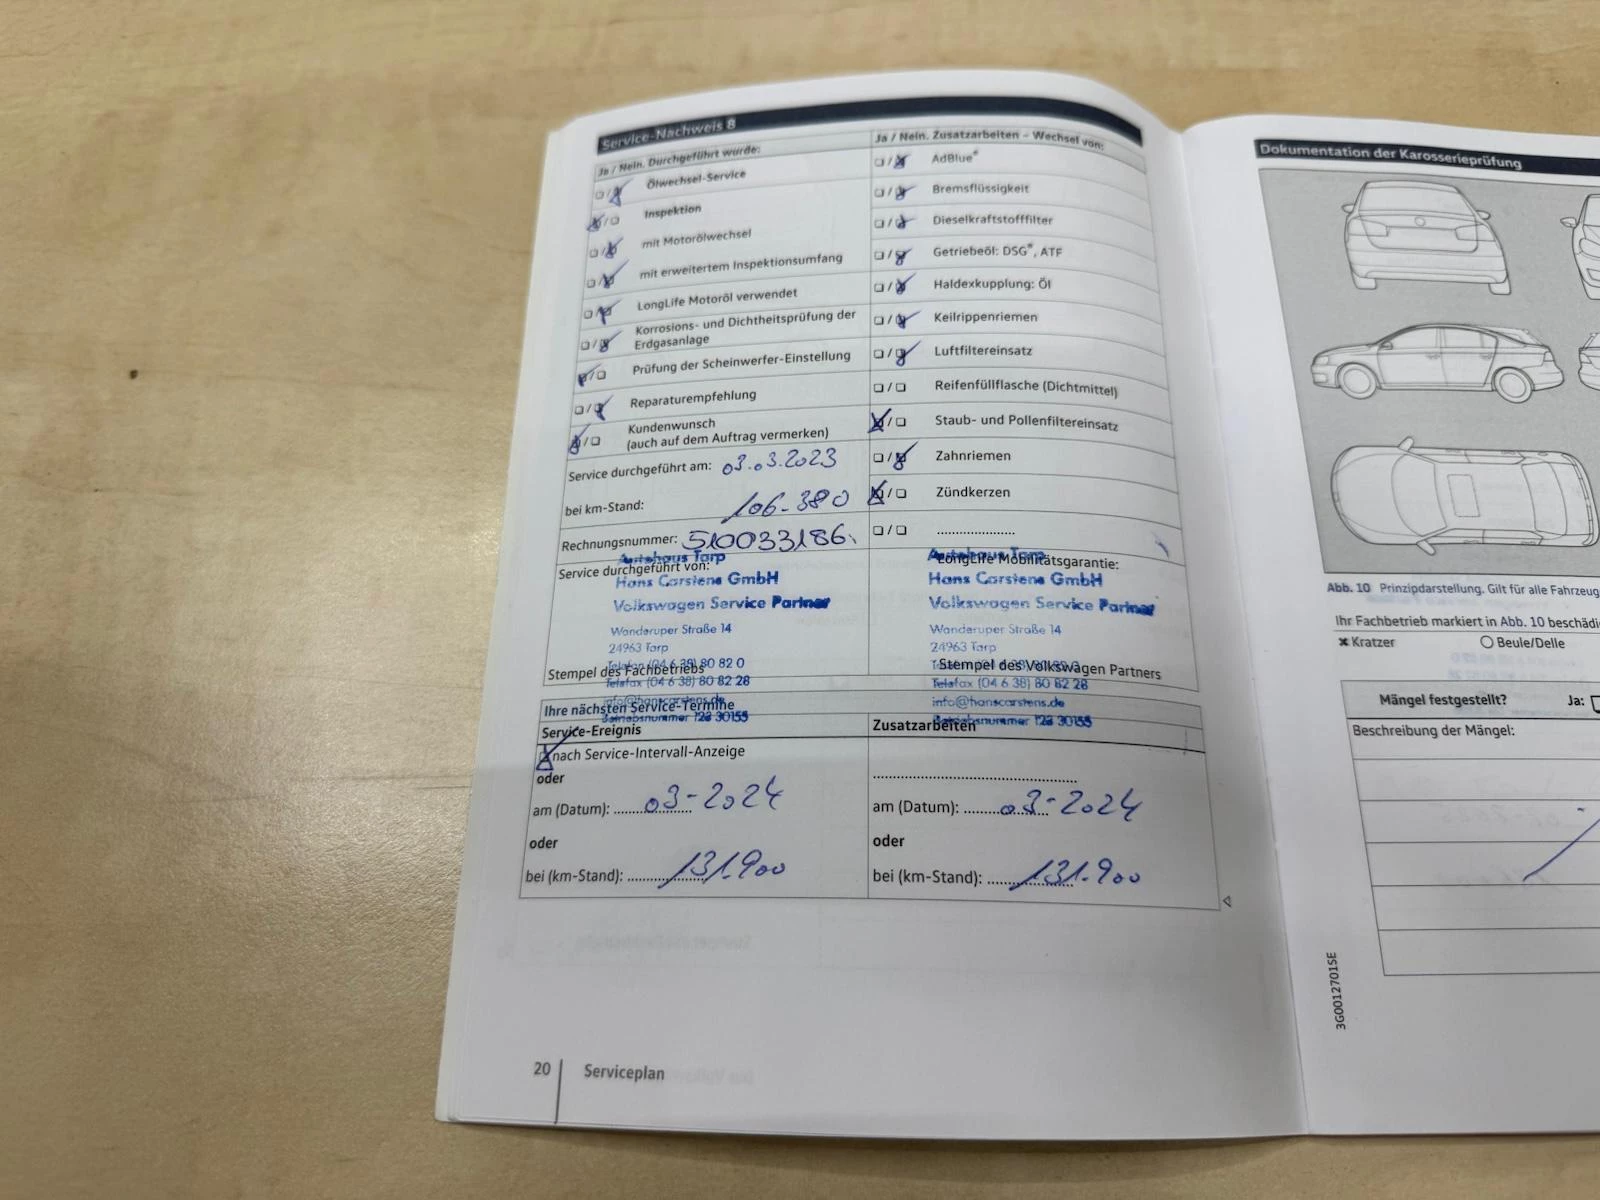 Service-Nachweis 8
Ja / Nein. Durchgeführt wurde:
Ölwechsel-Service
Inspektion
mit Motorölwechsel
mit erweitertem Inspektionsumfang
LongLife Motoröl verwendet
Korrosions- und Dichtheitsprüfung der
Erdgasanlage
Prüfung der Scheinwerfer-Einstellung
Reparaturempfehlung
Kundenwunsch
(auch auf dem Auftrag vermerken)
Service durchgeführt am: 03.03.2023
bei km-Stand: 106-380
Rechnungsnummer: 510033186.
Service durchgeführt von:
Autohaus Tarp
Hans Carstens GmbH
Volkswagen Service Partner
Wanderuper Straße 14
24963 Tarp
Telefon (04 6 38) 80 82 0
Stempel des Fachbetriebs
Telefax (04 6 38) 80 82 28
info@hanscarstens.de
Betriebsnummer 123 30155
Ja / Nein. Zusatzarbeiten – Wechsel von:
AdBlue®
Bremsflüssigkeit
Dieselkraftstofffilter
Getriebeöl: DSG®, ATF
Haldexkupplung: Öl
Keilrippenriemen
Luftfiltereinsatz
Reifenfüllflasche (Dichtmittel)
Staub- und Pollenfiltereinsatz
Zahnriemen
Zündkerzen
LongLife Mobilitätsgarantie:
Autohaus Tarp
Hans Carstens GmbH
Volkswagen Service Partner
Wanderuper Straße 14
24963 Tarp
Stempel des Volkswagen Partners
Telefax (04 6 38) 80 82 28
info@hanscarstens.de
Betriebsnummer 123 30155
Ihre nächsten Service-Termine
Service-Ereignis
nach Service-Intervall-Anzeige
oder
am (Datum): 03-2024
oder
bei (km-Stand): 131.900
Zusatzarbeiten
am (Datum): 03-2024
oder
bei (km-Stand): 131.900
20 Serviceplan
Dokumentation der Karosserieprüfung
Abb. 10 Prinzipdarstellung. Gilt für alle Fahrzeug
Ihr Fachbetrieb markiert in Abb. 10 beschädi
Kratzer Beule/Delle
Mängel festgestellt? Ja:
Beschreibung der Mängel:
3G0012701SE